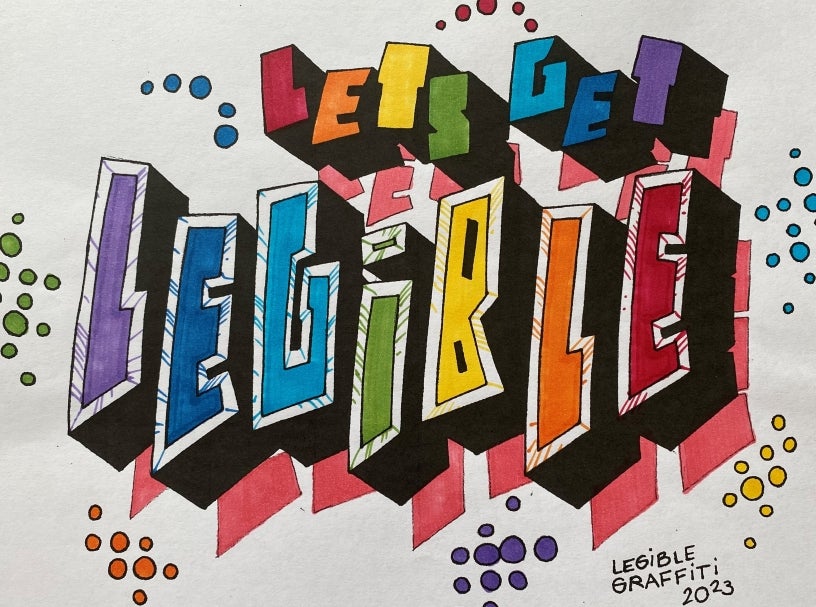 LETS GET
LEGiBLE
LEGiBLE
GRAFFiTi
2023